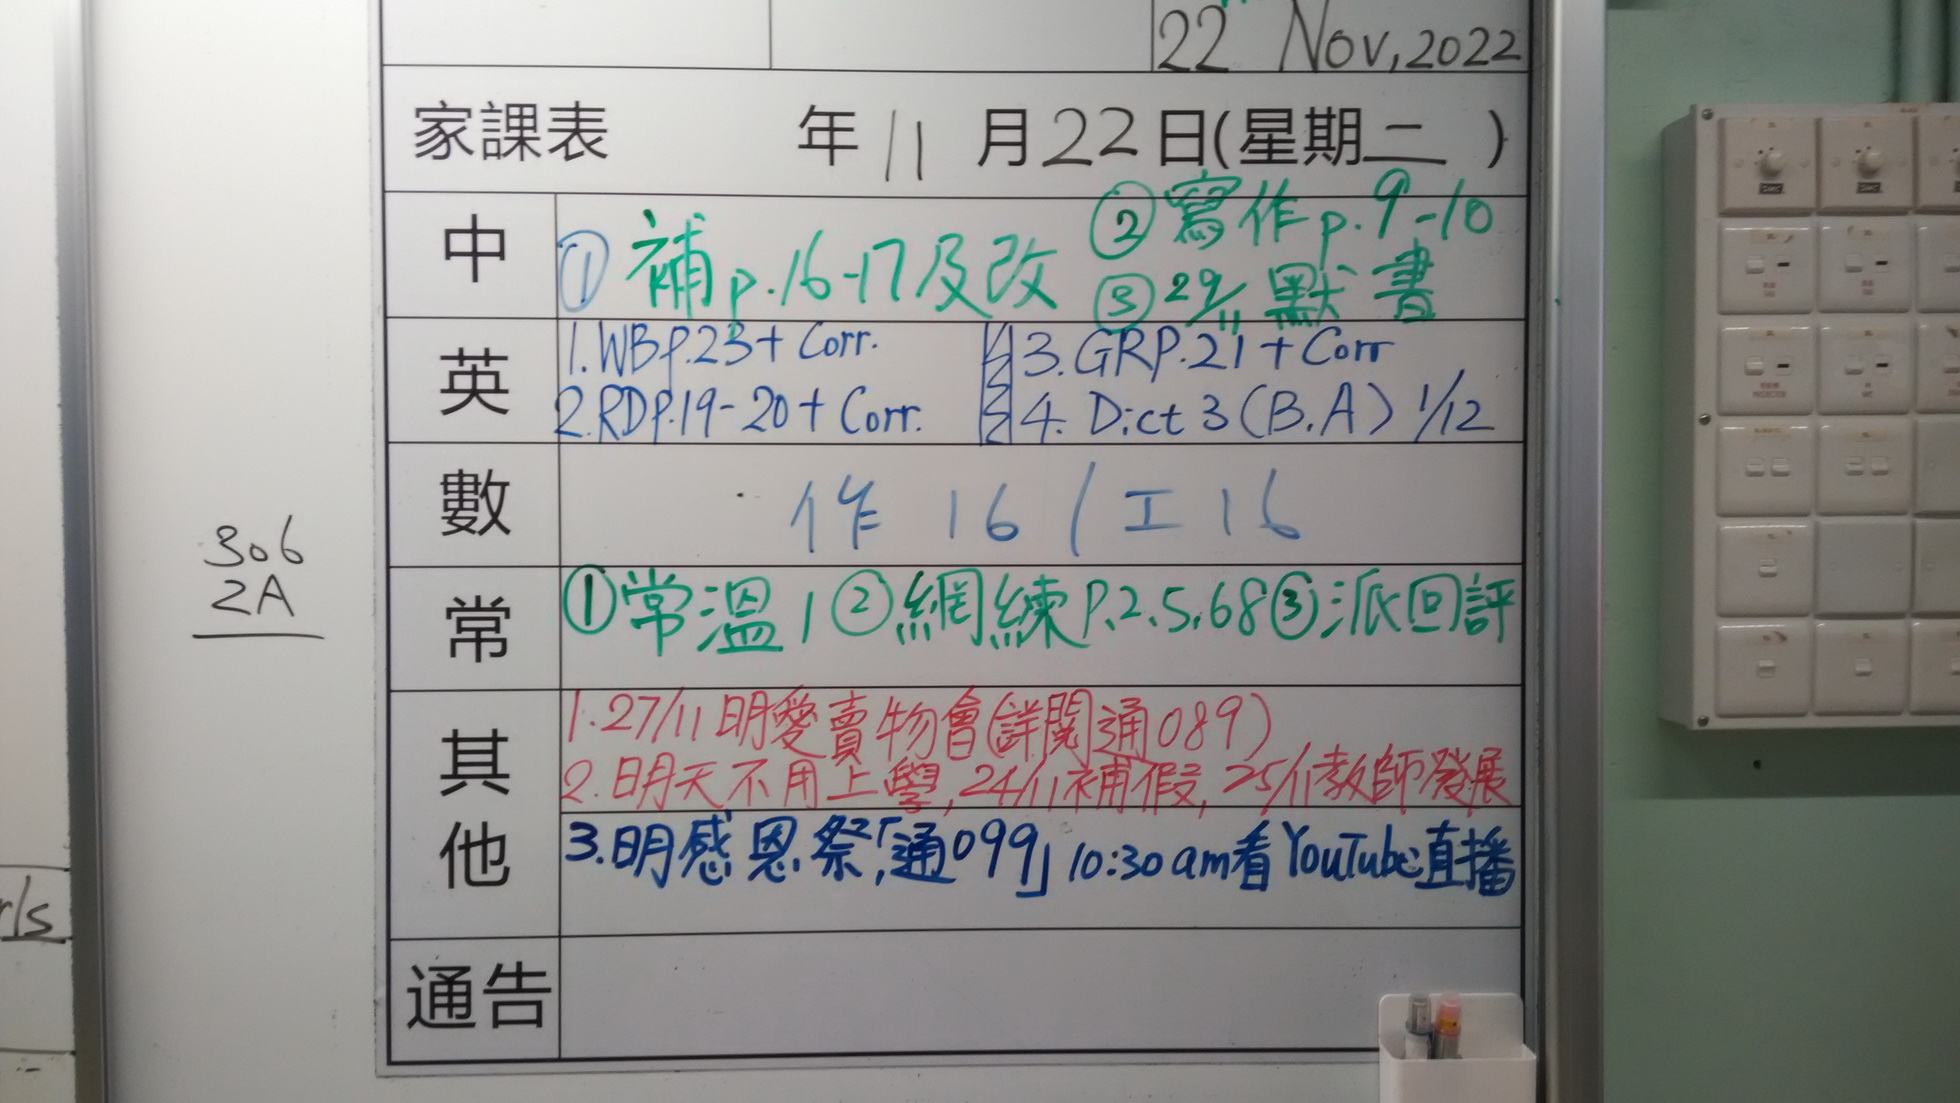 22 Nov, 2022
家課表 年 11 月 22 日(星期二 )
中
① 補 p.16-17及改
② 寫作 p.9-10
③ 29/11 默書
英
1.WB P.23 + Corr.
2.RD P.19-20 + Corr.
3.GR P.21 + Corr
4. Dict 3 (B.A) 1/12
數
作 16 / 工 16
常
①常溫1 ②網練P.2.5.68③派回評
其他
1.27/11 明愛賣物會(詳閱通089)
2.明天不用上學,24/11補假,25/11教師發展
3.明感恩祭,「通099」10:30am看YouTube直播
通告
306
2A